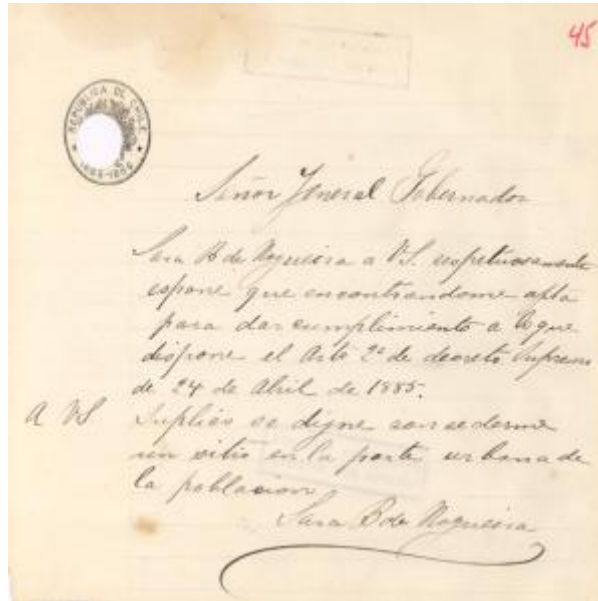 45
REPÚBLICA DE CHILE
1885-1886
Señor Jeneral Gobernador
Sara B de Nogueira a VS. respetuosamente
espone que encontrandome apta
para dar cumplimiento a lo que
dispone el Arto 2º de decreto Supremo
de 24 de Abril de 1885.
A VS Suplico se digne consederme
un sitio en la parte urbana de
la poblacion
Sara B de Nogueira